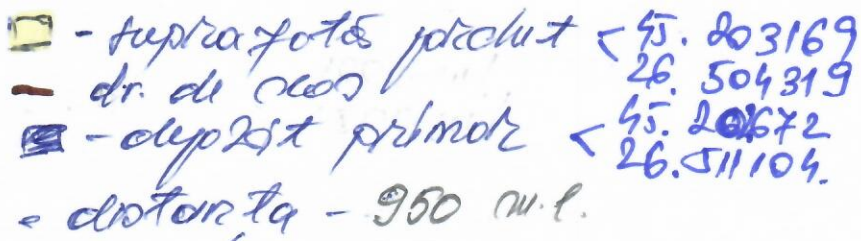 - suprafața parchet < 45. 203169
26. 504319
- dr. de scos
- depozit primar < 45. 202672
26. 511104.
- distanța - 950 m.l.